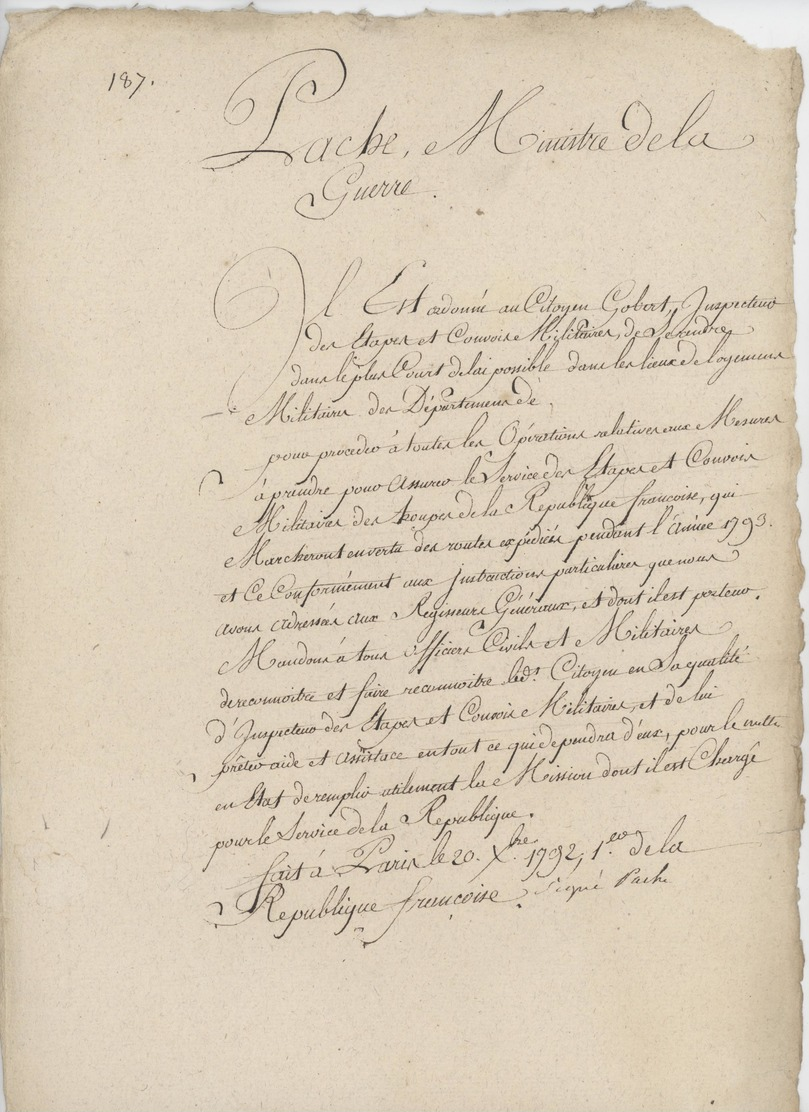 187.
Pache, Ministre de la
Guerre.
Il Est ordonné au Citoyen Gobert, Inspecteur
des Etapes et Convois Militaires, de Se rendre
dans le plus Court delai possible dans les lieux de logemens
Militaires des Départemens de
pour procéder à toutes les Opérations relatives aux Mesures
à prendre pour assurer le Service des Etapes et Convois
Militaires des troupes de la République françoise, qui
Marcheront en vertu des routes expédiées pendant l'année 1793.
et Ce Conformément aux instructions particulieres que nous
avons adressées aux Régisseurs Généraux, et dont il est porteur.
Mandons à tous officiers Civils et Militaires
de reconnoitre et faire reconnoitre led.t Citoyen en Sa qualité
d'Inspecteur des Etapes et Convois Militaires, et de lui
prêter aide et assistace en tout ce qui dependra d'eux, pour le mettre
en Etat de remplir utilement la Mission dont il est Chargé
pour le Service de la République.
fait à Paris le 20. X.bre 1792, 1.er de la
République françoise. Signé Pache